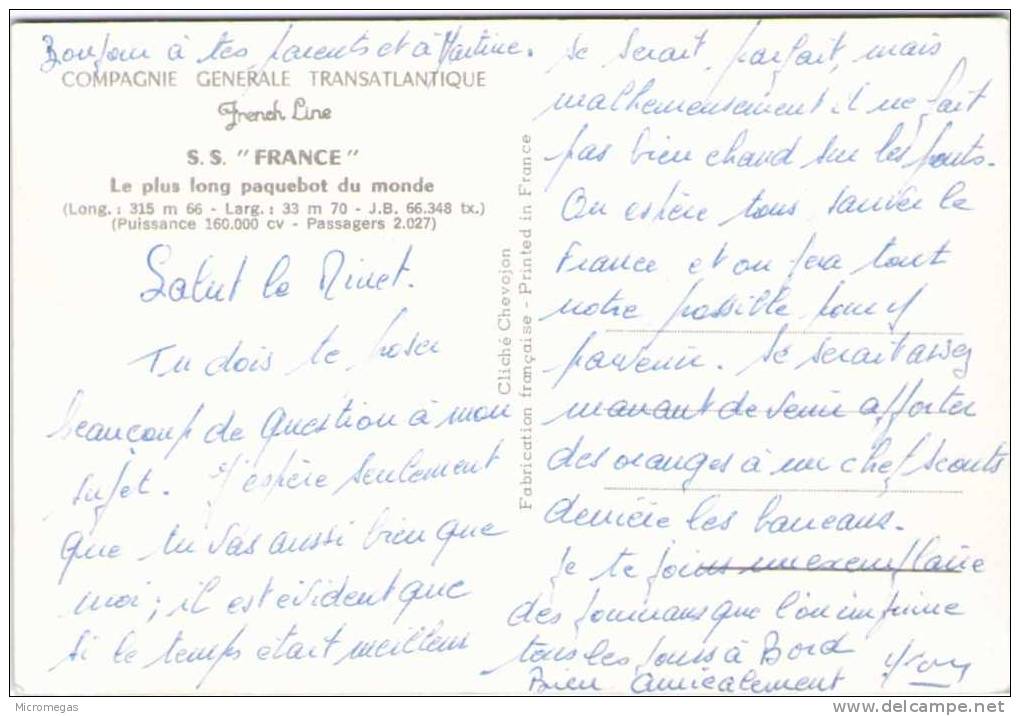 Bonjour à tes parents et à Martine.
COMPAGNIE GENERALE TRANSATLANTIQUE
French Line
S.S. "FRANCE"
Le plus long paquebot du monde
(Long.: 315 m 66 - Larg.: 33 m 70 - J.B. 66.348 tx.)
(Puissance 160.000 cv - Passagers 2.027)
Salut le Minet.
Tu dois te poser
beaucoup de question à mon
sujet. J'espère seulement
que tu vas aussi bien que
moi; il est évident que
si le temps était meilleur
se serait parfait, mais
malheureusement il ne fait
pas bien chaud sur les ponts.
On espère tous sauver le
France et on fera tout
notre possible pour y
parvenir. Se serait assez
marrant de venir apporter
des oranges à un chef scouts
derrière les barreaux.
Je te joins un exemplaire
des journaux que l'on imprime
tous les jours à Bord
Bien amicalement
Cliché Chevojon
Fabrication française - Printed in France
Micromegas
delcampe.net